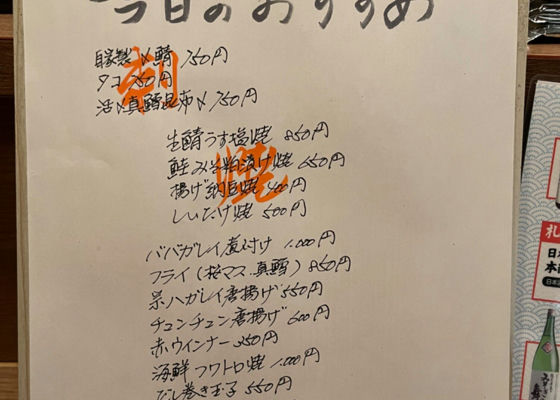 今日のおすすめ
刺
自家製〆鯖 750円
タコ 750円
活〆真鱈昆布〆 750円
焼
生鯖うす塩焼 850円
鮭みそ粕漬け焼 650円
揚げ納豆焼 400円
しいたけ焼 500円
ババガレイ煮付け 1.000円
フライ(桜マス.真鱈) 850円
宗ハガレイ唐揚げ 550円
チュンチュン唐揚げ 600円
赤ウインナー 350円
海鮮フワトロ焼 1.000円
だし巻き玉子 550円
札
日本